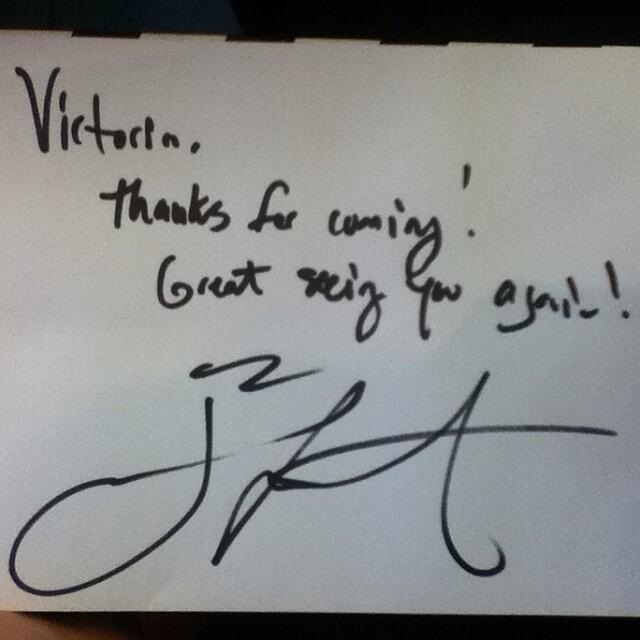 Victoria,
thanks for coming!
Great seeing you again!